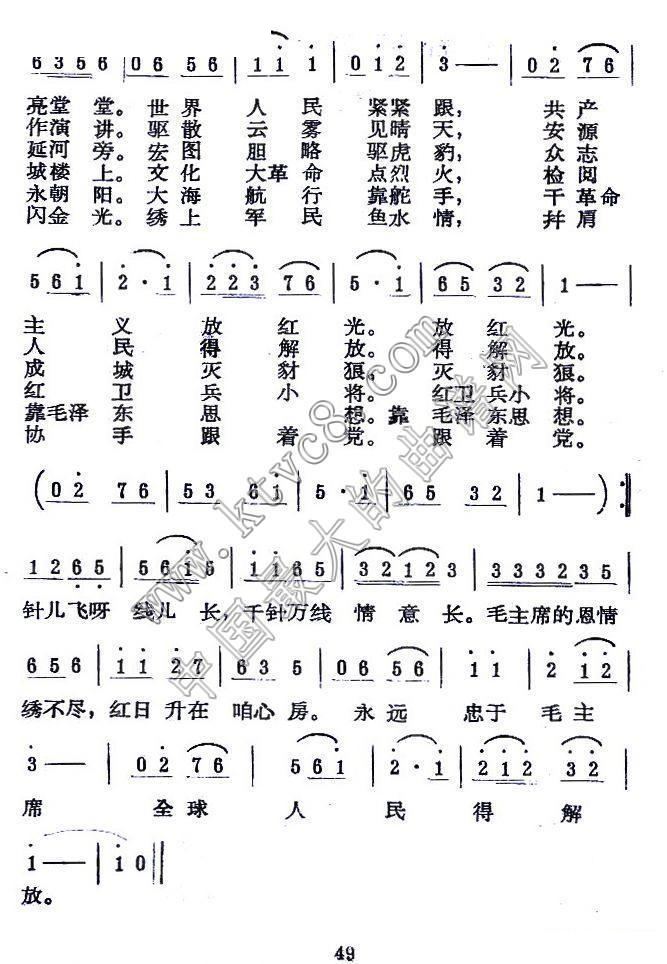 6 3 5 6 | 0 6 5 6 | 1 1 1 | 0 1 2 | 3 — | 0 2 7 6
亮堂堂。世界 人民 紧紧 跟， 共产
作演讲。驱散 云雾 见晴 天， 安源
延河旁。宏图 胆略 驱虎 豹， 众志
城楼上。文化 大革命 点烈 火， 检阅
永朝阳。大海 航行 靠舵 手， 干革命
闪金光。绣上 军民 鱼水 情， 并肩
5 6 1 | 2 · 1 | 2 2 3 7 6 | 5 · 1 | 6 5 3 2 | 1 —
主 义 放 红 光。 放 红 光。
人 民 得 解 放。 得 解 放。
成 城 灭 豺 狼。 灭 豺 狼。
红 卫 兵 小 将。 红卫 兵小 将。
靠毛泽 东 思 想。靠 毛泽 东思 想。
协 手 跟 着 党。 跟 着 党。
( 0 2 7 6 | 5 3 6 1 | 5 · 1 | 6 5 3 2 | 1 — ) :
1 2 6 5 | 5 6 1 6 | 1 1 6 5 | 3 2 1 2 3 | 3 3 3 2 3 5
针儿飞呀 线儿 长，千针万线 情 意 长。毛主席的恩情
6 5 6 | 1 1 2 7 | 6 3 5 | 0 6 5 6 | 1 · 1 | 2 2
绣不尽，红日 升在 咱心 房。永 远 忠于 毛 主
3 — | 0 2 7 6 | 5 6 1 | 2 · 1 | 2 1 2 3 2
席 全球 人 民 得 解
1 — | 1 0 ‖
放。
49
www.ktvc8.com
中国最大的曲谱网